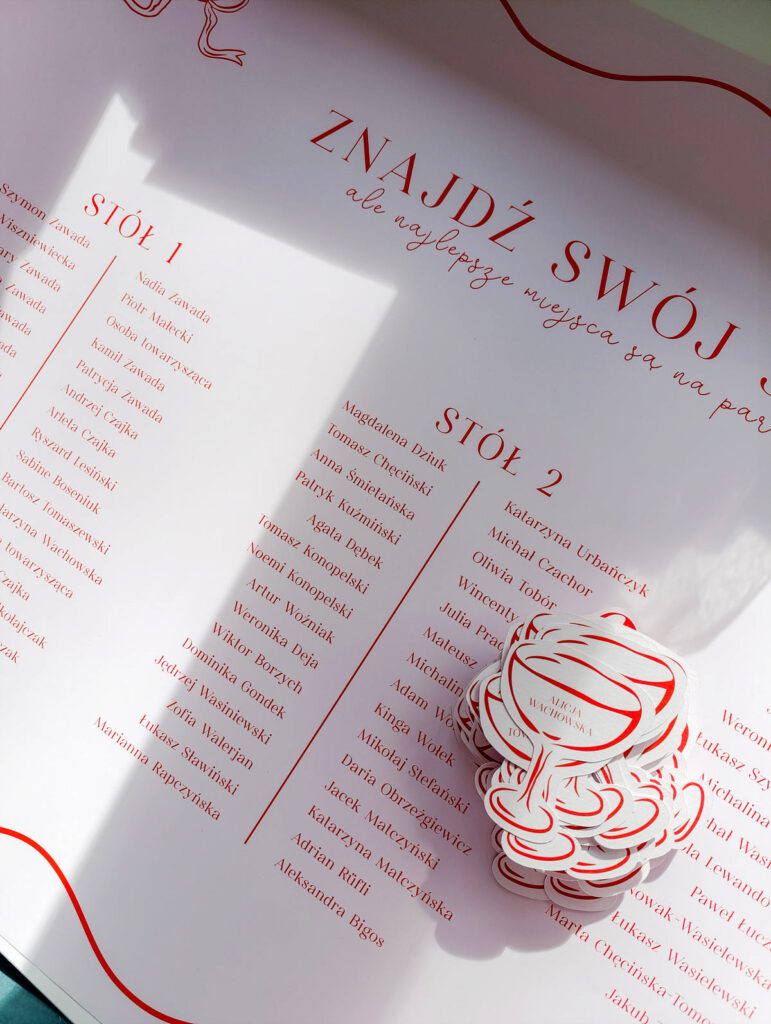 ZNAJDŹ SWÓJ
ale najlepsze miejsca są na
STÓŁ 1
Szymon Zawada
Zawada
Zawada
Nadia Zawada
Piotr Małecki
Osoba towarzysząca
Kamil Zawada
Patrycja Zawada
Andrzej Czajka
Arleta Czajka
Ryszard Lesiński
Sabine Boseniuk
Bartosz Tomaszewski
Wachowska
towarzysząca
STÓŁ 2
Magdalena Dziuk
Tomasz Chęciński
Anna Śmietańska
Patryk Kuźmiński
Agata Dębek
Tomasz Konopelski
Noemi Konopelski
Artur Woźniak
Weronika Deja
Wiktor Borzych
Dominika Gondek
Jędrzej Wasiniewski
Zofia Walerjan
Łukasz Sławiński
Marianna Rapczyńska
Katarzyna Urbańczyk
Michał Czachor
Oliwia Tobór
Wincenty
Julia
Mateusz
Michalina
Adam
Kinga Wołek
Mikołaj Stefański
Daria Obrzeżgiewicz
Jacek Małczyński
Katarzyna Małczyńska
Adrian Rüfli
Aleksandra Bigos
ALICJA
WACHOWSKA
Łukasz
Michalina
Paweł
Nowak-Wasielewska
Łukasz Wasielewski
Marta
Jakub